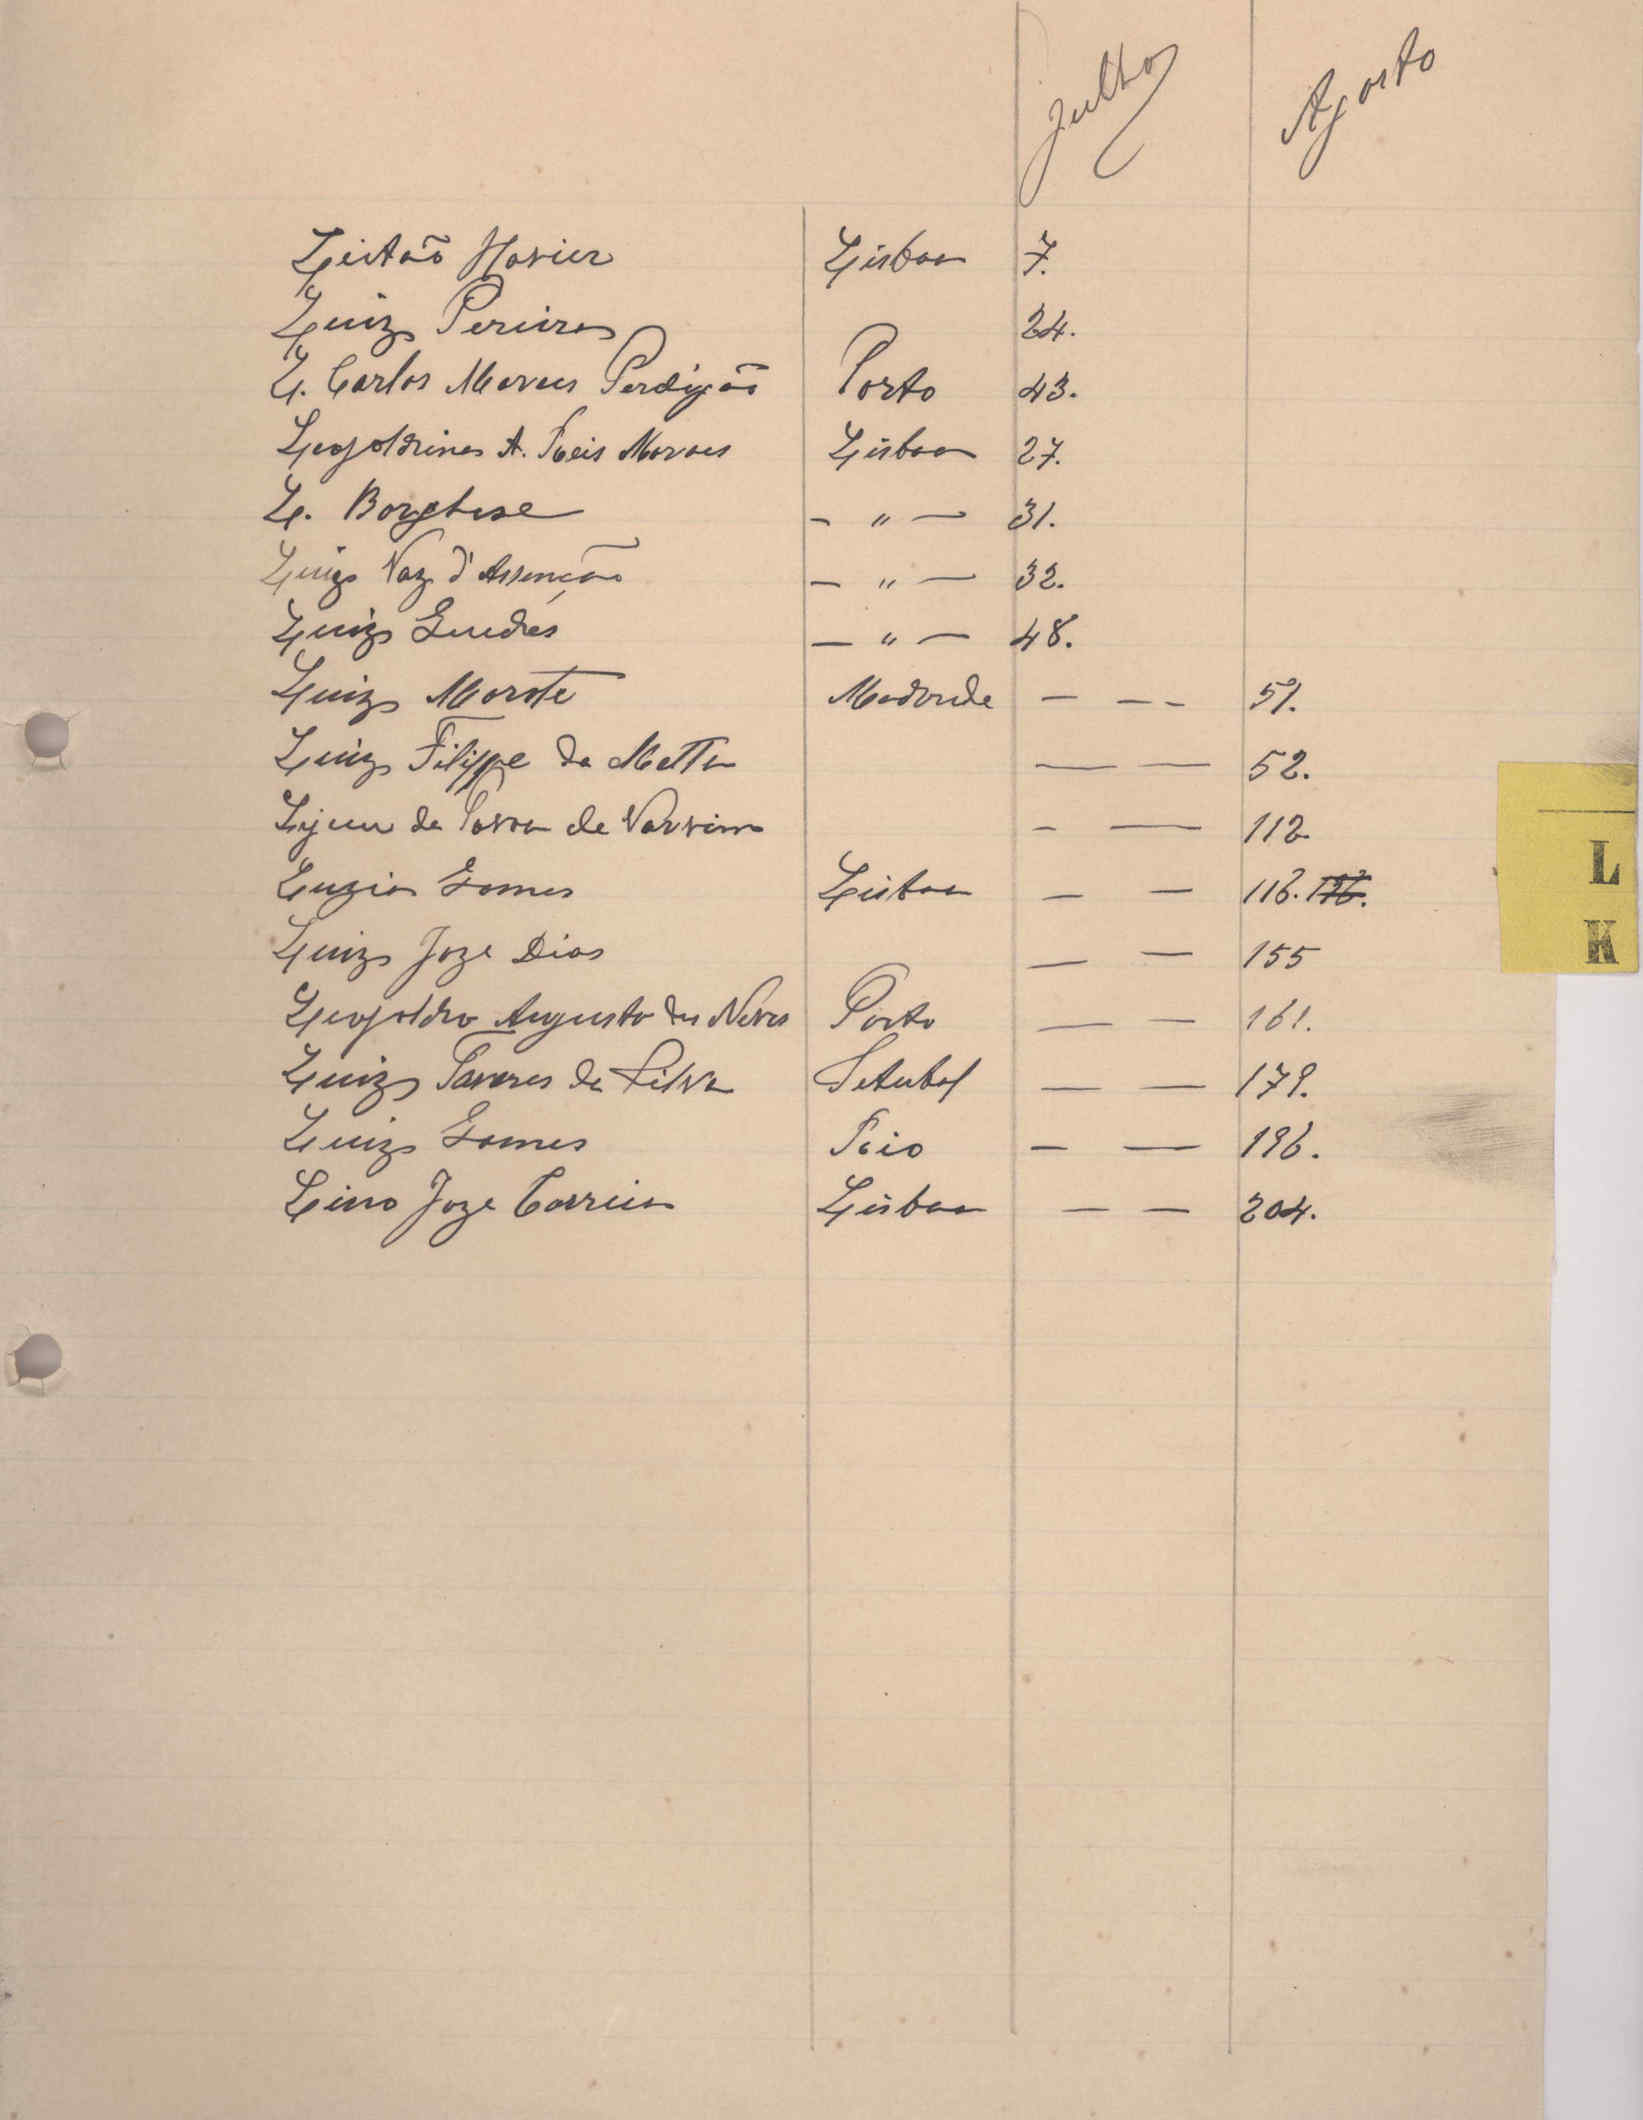 Julho Agosto
Leitão Xavier Lisboa 7.
Luiz Pereira 24.
L. Carlos Moraes Perdigão Porto 43.
Leopoldina A. Reis Moraes Lisboa 27.
L. Borghese - " — 31.
Luiz Vaz d'Assenção — " — 32.
Luiz Guedes — " — 48.
Luiz Morote — — — 51.
Luiz Filippe da Matta — — 52.
da Povoa de Varzim - — 112
Luzia Gomes Lisboa — — 116.
Luiz Joze Dias — — 155
Leopoldro Augusto das Neves Porto — — 161.
Luiz Tavares da Silva Setubal — — 179.
Luiz Gomes Rio — — 196.
Lino Joze Correia Lisboa — — 204.
L
K